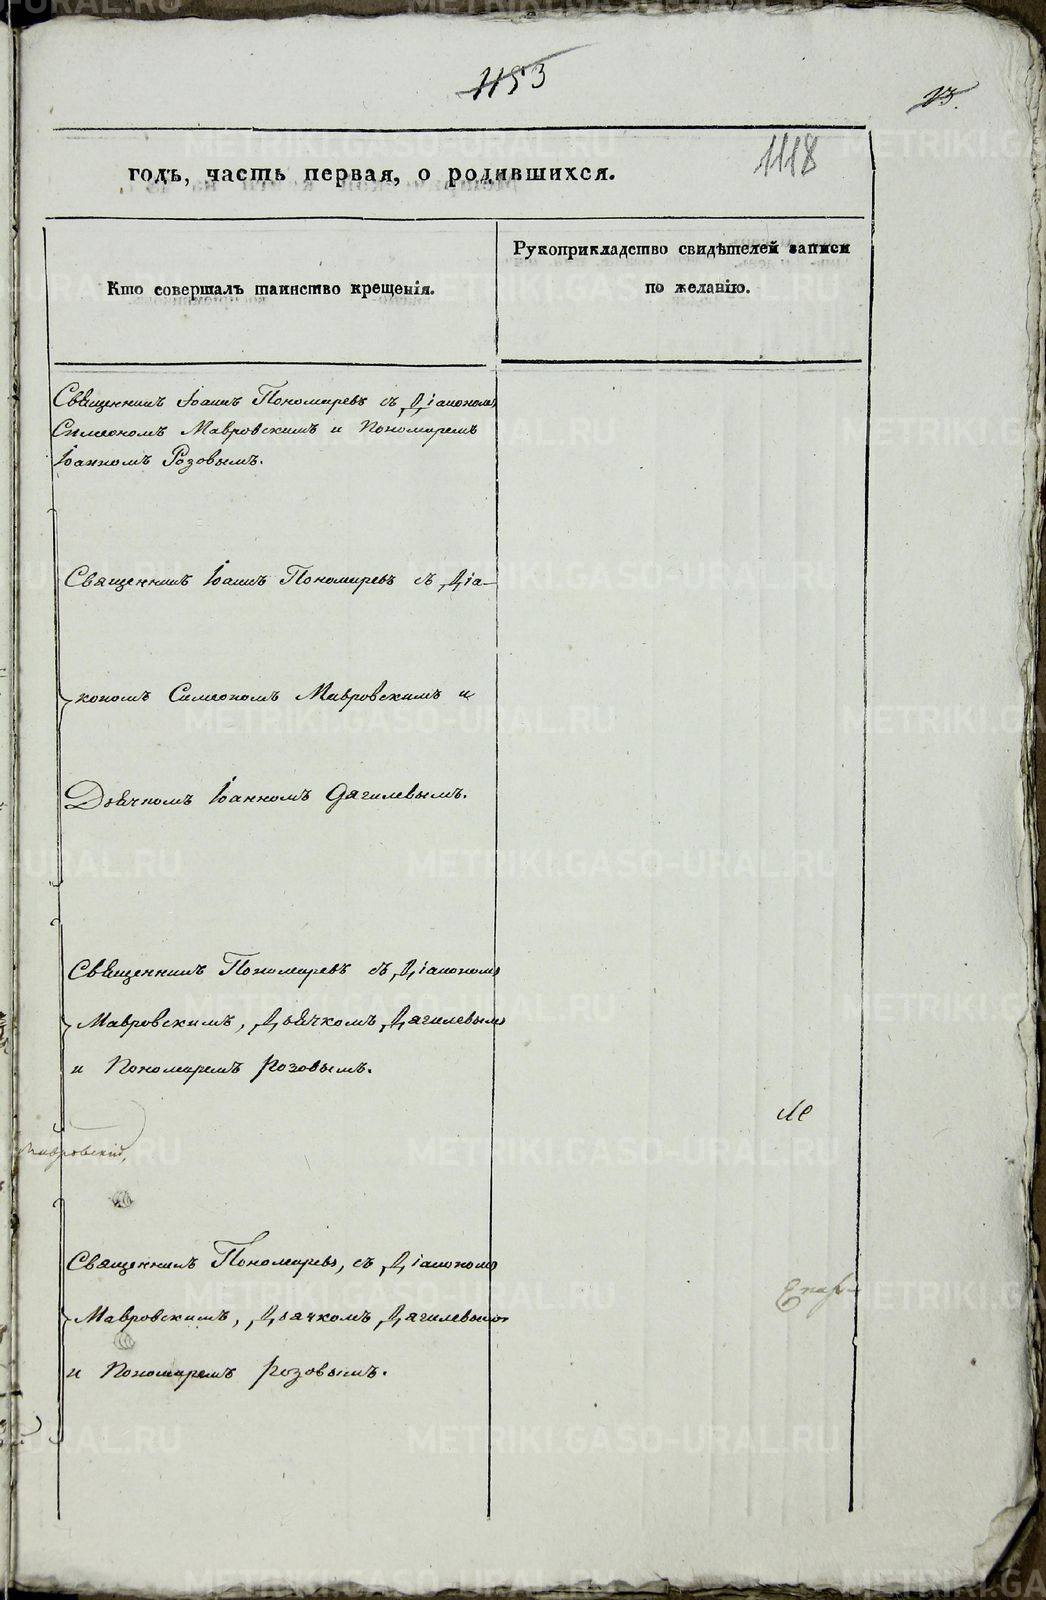 1153
13.
1118
годъ, часть первая, о родившихся.
Кто совершалъ таинство крещенія.
Рукоприкладство свидѣтелей записи
по желанію.
Священникъ Іоаннъ Пономаревъ съ Діакономъ
Симеономъ Мавровскимъ и Пономаремъ
Іоанномъ Розовымъ.
Священникъ Іоаннъ Пономаревъ съ Діа-
кономъ Симеономъ Мавровскимъ и
Дьячкомъ Іоанномъ Дягилевымъ.
Священникъ Пономаревъ съ Діакономъ
Мавровскимъ, Дьячкомъ Дягилевымъ
и Пономаремъ Розовымъ.
Мавровскій,
Священникъ Пономаревъ, съ Діакономъ
Мавровскимъ, Дьячкомъ Дягилевымъ
и Пономаремъ Розовымъ.
METRIKI.GASO-URAL.RU